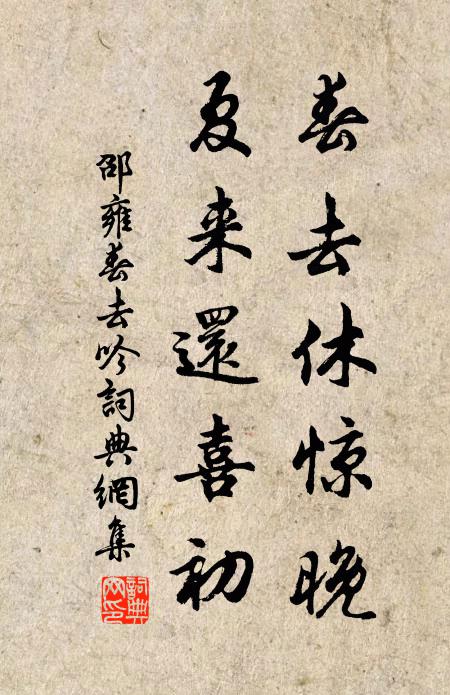 春去休惊晚
夏来還喜初
邵雍春去吟詞典網集
詞典
网印